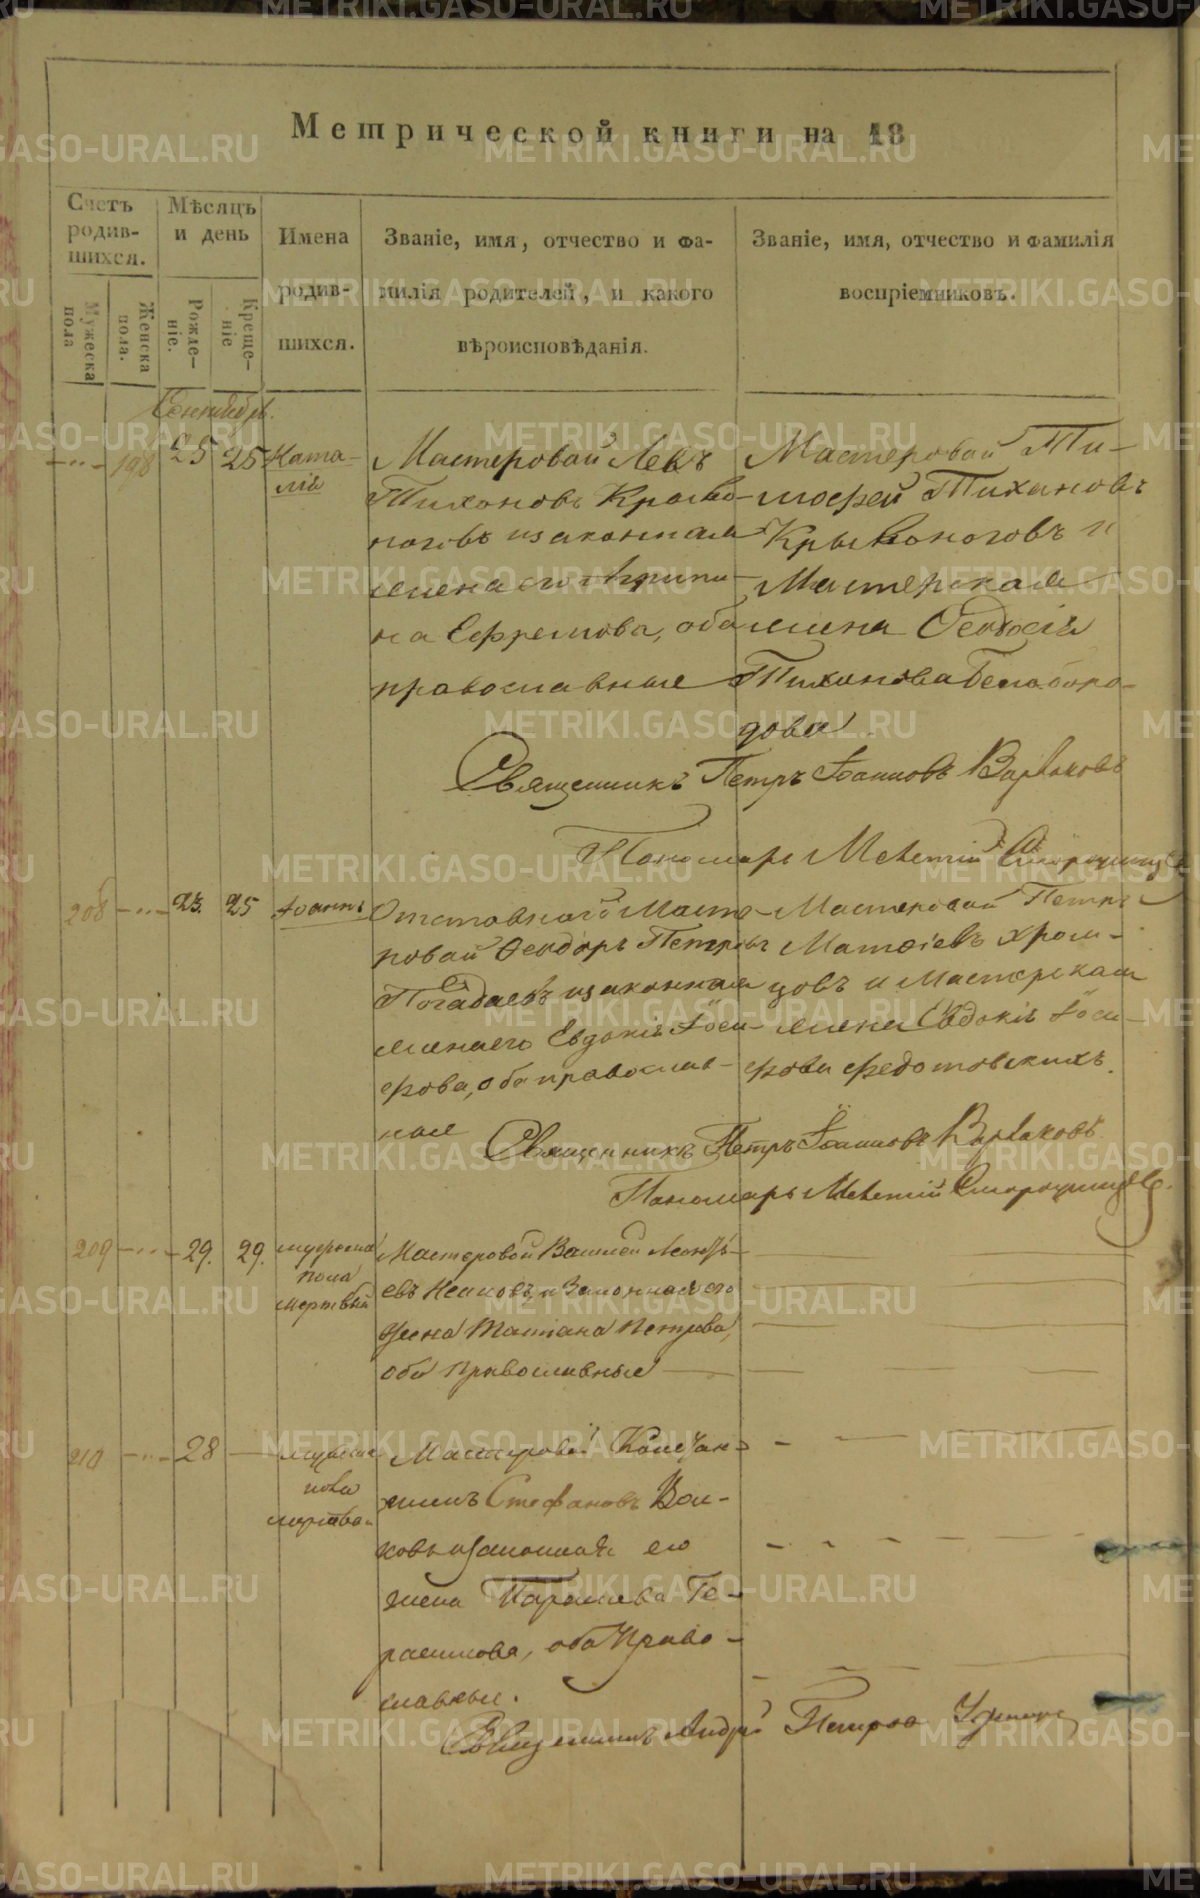 Метрической книги на 18
Счетъ родив-шихся.
Мѣсяцъ и день
Имена родив-шихся.
Званіе, имя, отчество и фа-
милія родителей, и какого
вѣроисповѣданія.
Званіе, имя, отчество и фамилія
воспріемниковъ.
Мужеска пола
Женска пола.
Рожде-ніе.
Креще-ніе
Сентябрь.
198 25 25 Ната-
лія
Мастеровой Левъ
Тихоновъ Криво-
ноговъ и законная
жена его Агрипи-
на Ефремова, оба
православные
Мастеровой Ти-
мофей Тихановъ
Крывоноговъ и
Мастерская
жена Ѳеодосія
Тиханова Белоборо-
дова
Священникъ Петръ Іоанновъ Варваковъ
Пономарь Мелетій
208 23. 25 Іоаннъ
Отставной Масте-
ровой Ѳеодоръ Петровъ
Погадаевъ и законная
жена его Евдокія Іоси-
фова, оба православ-
ные
Мастеровой Петръ
Матѳіевъ Хром-
цовъ и Мастерская
жена Евдокія Іоси-
фова Федотовскихъ.
Священникъ Петръ Іоанновъ Варваковъ
Пономарь Мелетій
209 29. 29. мужеска
пола
мертвый
Мастеровой Василей Леонтъ-
евъ и Законная его
Жена Татіана Петрова,
оба православные
210 28 мужеска
пола
мертвой
Мастеровой Констан-
тинъ Стефановъ Вол-
ковъ и законная его
жена Парасева Ге-
расимова, оба Право-
славные.
Священникъ Андрей Петровъ
METRIKI.GASO-URAL.RU